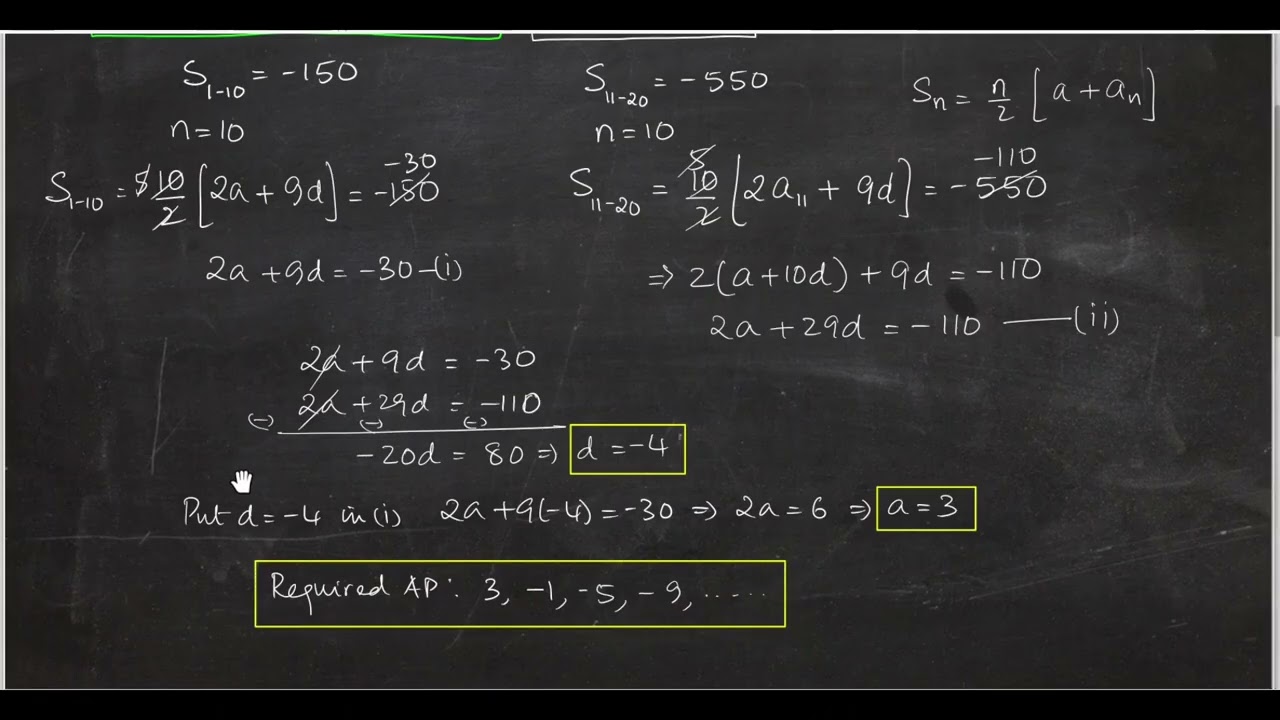 S₁₋₁₀ = -150
n = 10
S₁₋₁₀ = 5 10/2 [2a + 9d] = -150 -30
2a + 9d = -30 -(i)
S₁₁₋₂₀ = -550
n = 10
S₁₁₋₂₀ = 5 10/2 [2a₁₁ + 9d] = -550 -110
⇒ 2(a+10d) + 9d = -110
2a + 29d = -110 —(ii)
Sₙ = n/2 [a + aₙ]
2a + 9d = -30
2a + 29d = -110
(-) (-) (-)
-20d = 80 ⇒ d = -4
Put d = -4 in (i) 2a + 9(-4) = -30 ⇒ 2a = 6 ⇒ a = 3
Required AP: 3, -1, -5, -9, .....